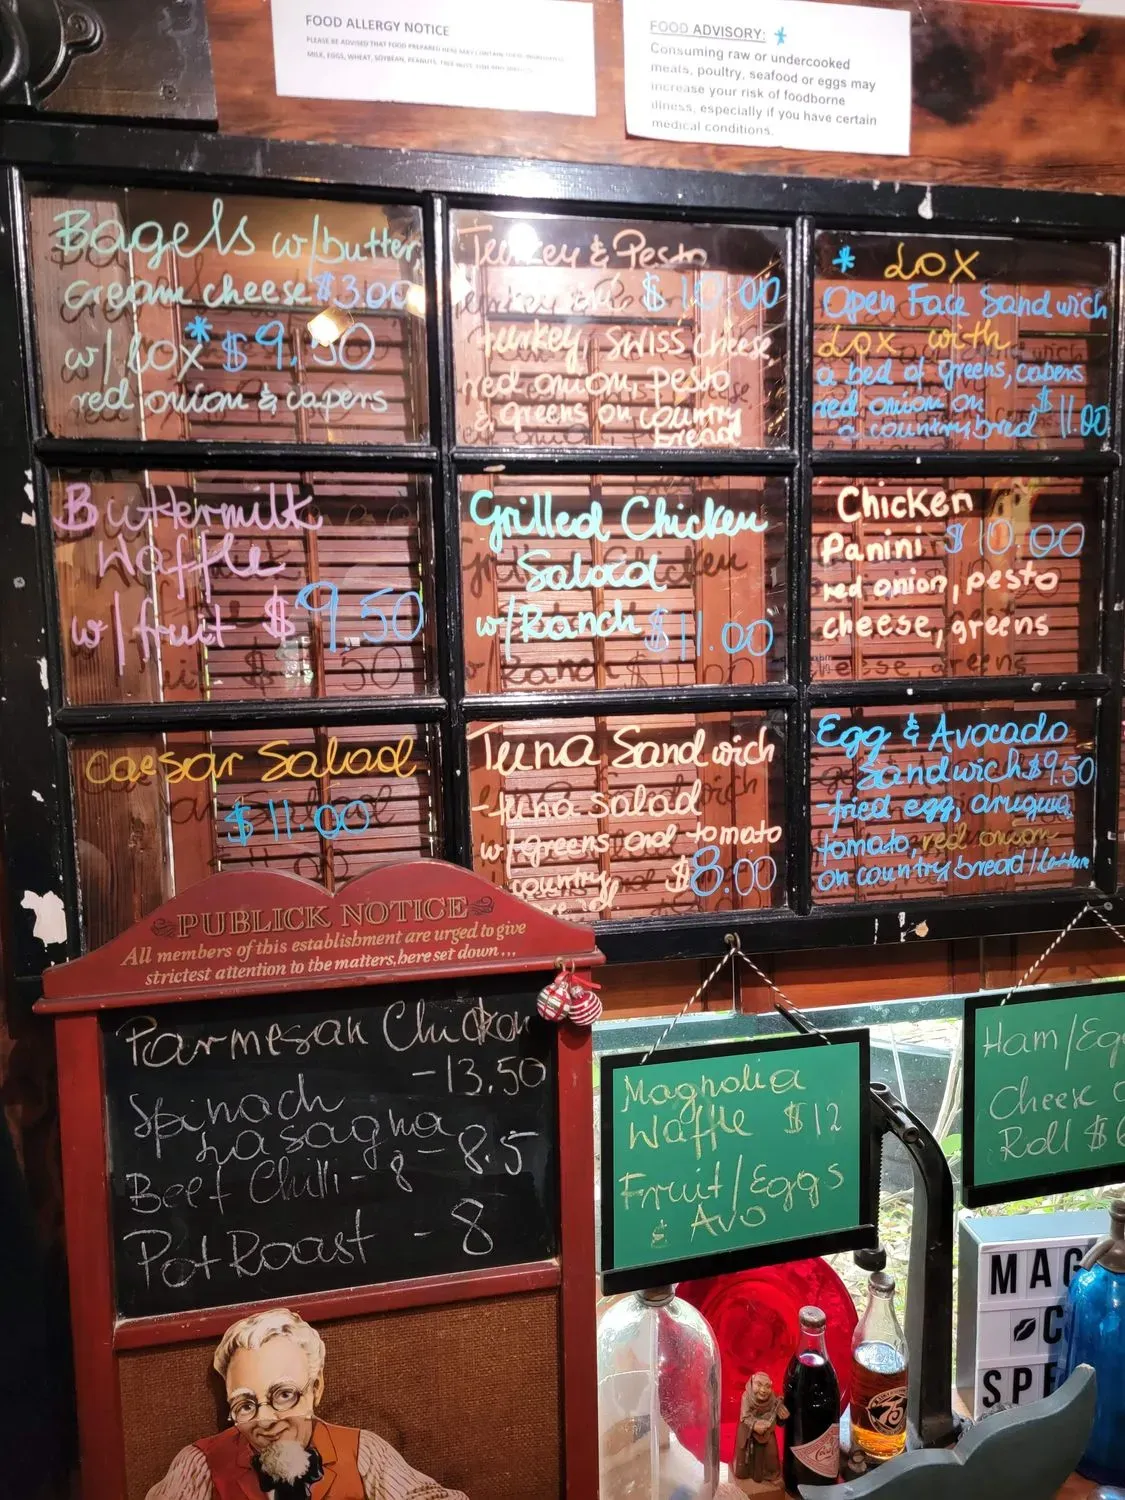 FOOD ALLERGY NOTICE
PLEASE BE ADVISED THAT FOOD PREPARED HERE MAY CONTAIN THESE INGREDIENTS:
MILK, EGGS, WHEAT, SOYBEAN, PEANUTS, TREE NUTS, FISH AND SHELLFISH
FOOD ADVISORY: *
Consuming raw or undercooked
meats, poultry, seafood or eggs may
increase your risk of foodborne
illness, especially if you have certain
medical conditions.
Bagels w/butter
cream cheese $3.00
w/ lox* $9.50
red onion & capers
Turkey & Pesto
$10.00
turkey, swiss cheese
red onion, pesto
& greens on country
bread
* Lox
Open Face Sandwich
Lox with
a bed of greens, capers
red onion on $
a country bred 11.00
Buttermilk
Waffle
w/fruit $9.50
Grilled Chicken
Salad
w/Ranch $11.00
Chicken
Panini $10.00
red onion, pesto
cheese, greens
Caesar Salad
$11.00
Tuna Sandwich
-tuna salad
w/greens and tomato
country $8.00
Egg & Avocado
Sandwich $9.50
-fried egg, arugula,
tomato red onion
on country bread/
PUBLICK NOTICE
All members of this establishment are urged to give
strictest attention to the matters, here set down...
Parmesan Chicken
-13.50
Spinach
Lasagna - 8.5
Beef Chilli - 8
Pot Roast - 8
Magnolia
Waffle $12
Fruit/Eggs
& Avo
Ham/Eg
Cheese
Roll $
MAG
C
SPE
75